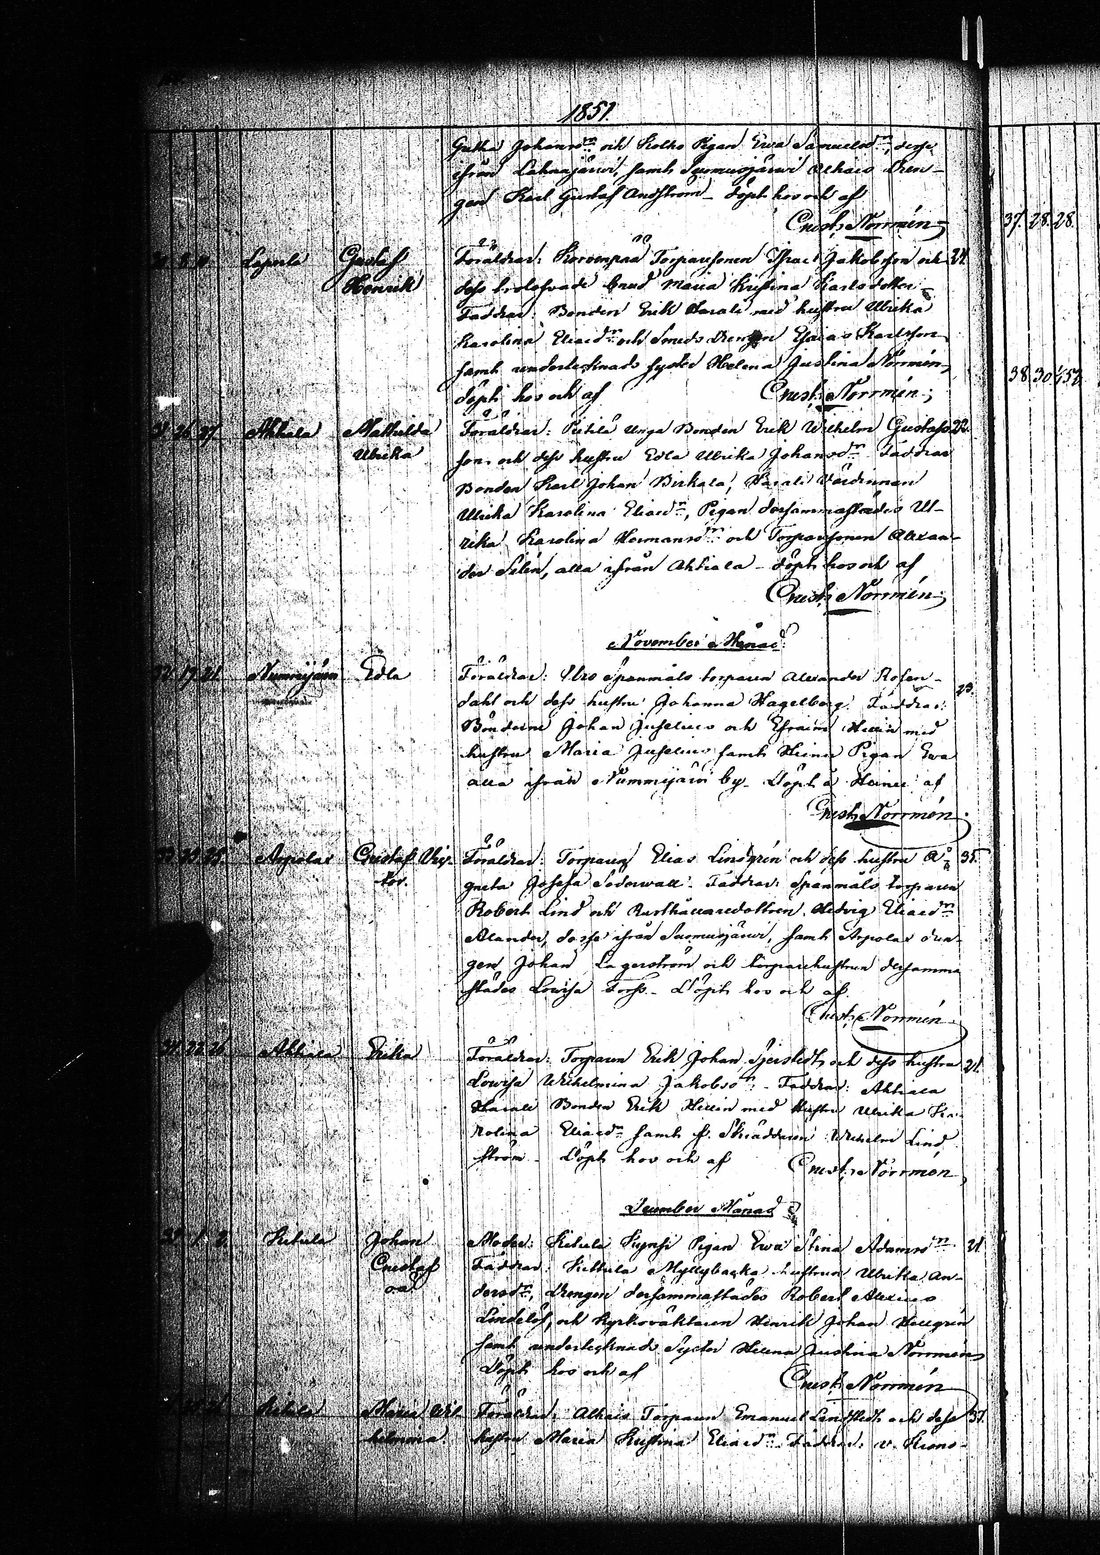 1857.
Johansdn och Kolko Pigan Ewa Samuelsdn, desse
ifrån Lahnajärwi, samt Suomusjärwi Alhais Dren-
gen Karl Gustaf Andström - Döpt hos och af
Gust. Norrmén
37. 28. 28.
Gustaf Henrik
Föräldrar: Torparesonen Jakobsson och 24
dess trolofvade brud Maria Kristina Karlsdotter
Faddrar: Bonden Erik Harali med hustru Ulrika
Karolina Eliaedn och Smeds Drengen Esaias Karlsson
samt undertecknads syster Helena Justina Norrmén,
döpt hos och af Gust. Norrmén
38. 30.
26. 27. Ahtiala Mathilda Ulrika
Föräldrar: Unga Bonden Erik Wilhelm Gustafs- 22.
son och dess hustru Edla Ulrika Johansdn - Faddrar
Bonden Karl Johan Harali Värdinnan
Ulrika Karolina Eliaedn, Pigan dersammastädes Ul-
rika Karolina Hermansdn och Torparesonen Alexan-
der Selin, alla ifrån Ahtiala - döpt hos och af
Gust. Norrmén
November Månad
17. 21. Nummijärwi Edla
Föräldrar: Spanmåls torparen Alexander Rosen-
dahl och dess hustru Johanna Hagelberg. Faddrar: 23.
Bönderne Johan Juselius och Efraim med
hustru Maria Juselius samt Heinu Pigan Ewa
alla ifrån Nummijärwi by - Döpt å Heinu af
Gust. Norrmén
Arpolas Gustaf
Föräldrar: Torparen Elias Lindgrén och dess hustru Au- 35.
gusta Josefa Söderwall - Faddrar: Spanmåls torparen
Robert Lind och Rusthållaredottren Hedvig Eliaedn
Alander, desse ifrån Suomusjärwi, samt Arpolas dren-
gen Johan Lagerström och torparehustrun dersamma
städes Lowisa Fors - Döpt hos och af
Gust. Norrmén
34. 22. 26. Ahtiala Erika
Föräldrar: Torparen Erik Johan Sjerstedt och dess hustru 21.
Lowisa Wilhelmina Jakobsdn - Faddrar: Ahtiala
Harali Bonden Erik med Hustru Ulrika Ka-
rolina Eliaedn samt f. Skräddaren Wilhelm Lind
ström - Döpt hos och af Gust. Norrmén
December Månad
35. 1. 2. Kettula Johan Gustaf oä
Moder: Kettula Pigan Ewa Stina Adamsdn 21.
Faddrar: Kettula Myllybacka hustrun Ulrika An-
dersdn, Drengen dersammastädes Robert Alexius
Lindelöf, och Kyrkoväktaren Henrik Johan Hellgrén
samt undertecknads Syster Helena Justina Norrmén
Döpt hos och af Gust. Norrmén
Kettula Maria Wil-
helmina.
Föräldrar: Alhais Torparen Emanuel Lindstedt och dess 37.
hustru Maria Kristina Eliaedn Faddrar: v. Krono-